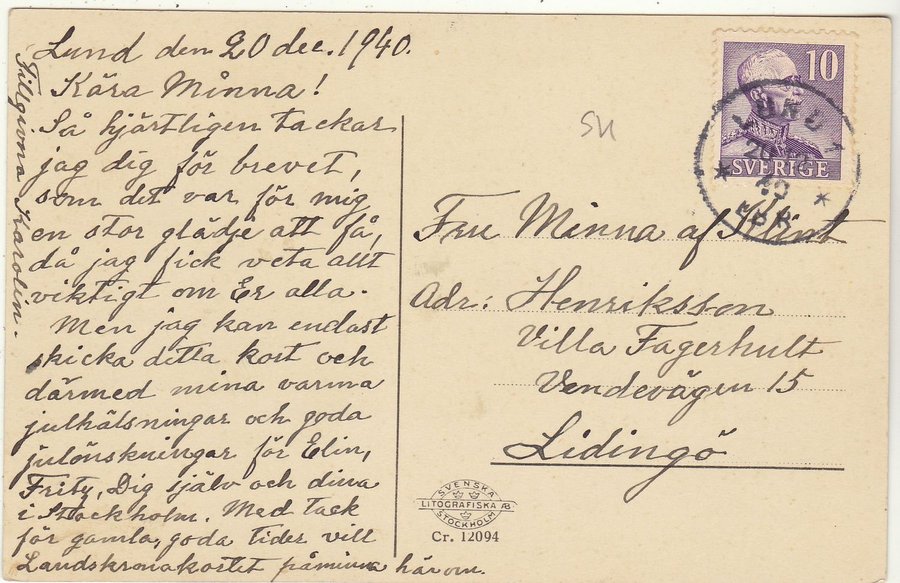 Lund den 20 dec. 1940.
Kära Minna!
Så hjärtligen tackar
jag dig för brevet,
som det var för mig
en stor glädje att få,
då jag fick veta allt
viktigt om Er alla.
Men jag kan endast
skicka detta kort och
därmed mina varma
julhälsningar och goda
julönskningar för Elin,
Fritz, Dig själv och dina
i Stockholm. Med tack
för gamla, goda tider vill
Landskronakortet påminna härom.
Tillgivna Karolin.
10
SVERIGE
LUND 1
40
SH
Fru Minna af
Adr: Henriksson
Villa Fagerhult
Vendevägen 15
Lidingö
SVENSKA
LITOGRAFISKA AB
STOCKHOLM
Cr. 12094